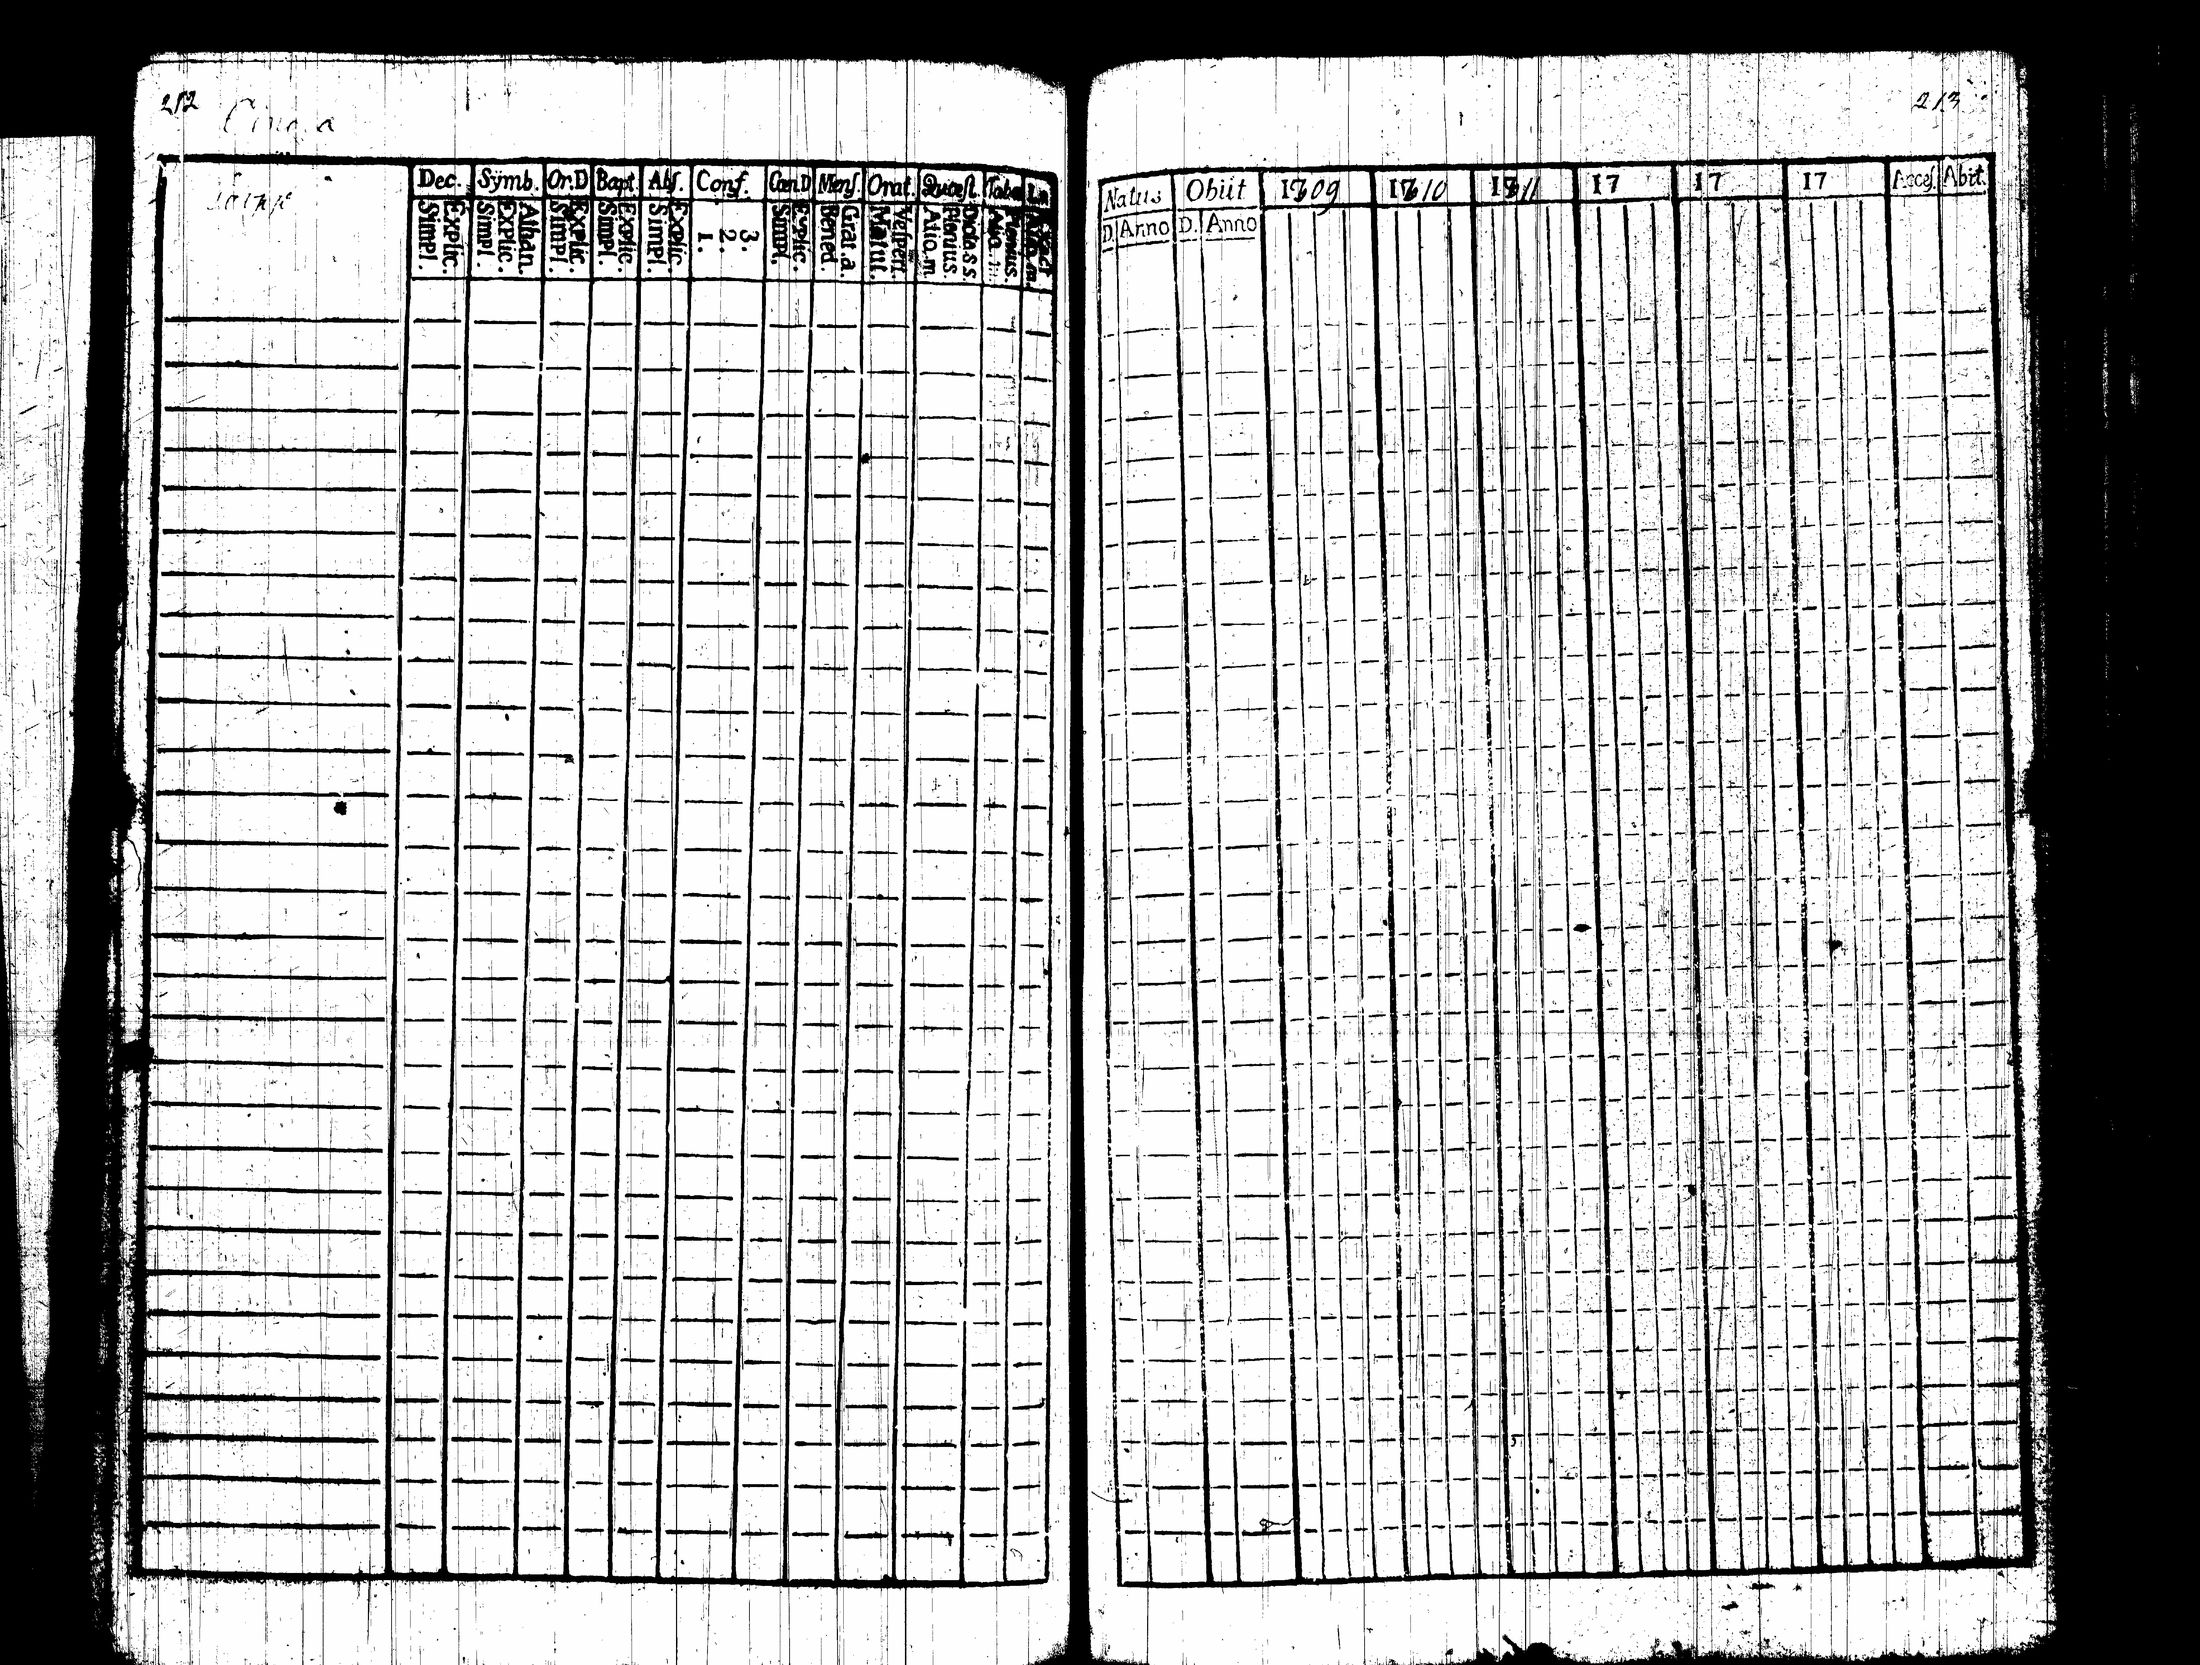 212
Dec. Symb. Or.D Bapt. Abſ. Conf. Cœn.D Menſ. Orat. Quæſt. Taba
Simpl. Explic. Simpl. Explic. Athan. Simpl. Explic. Simpl. Explic. Simpl. Explic. 1. 2. 3. Simpl. Explic. Bened. Grat.a. Matut. Veſpert. Atio.m. Plenius. Dicta s.s. Plenius.
213
Natus Obiit 1809 1810 1811 17 17 17 Acceſ. Abit.
D Anno D. Anno